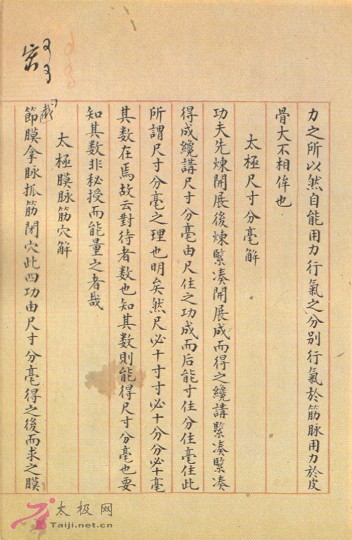 力之所以然自能用力行氣之分别行氣於筋脉用力於皮
骨大不相侔也
太極尺寸分毫解
功夫先煉開展後煉緊凑開展成而得之纔講緊凑緊凑
得成纔講尺寸分毫由尺住之功成而后能寸住分住毫住此
所謂尺寸分毫之理也明矣然尺必十寸寸必十分分必十毫
其数在焉故云對待者数也知其数則能得尺寸分毫也要
知其数非秘授而能量之者哉
太極膜脉筋穴解
節膜拿脉抓筋閉穴此四功由尺寸分毫得之後而求之膜
太极网
Taiji.net.cn